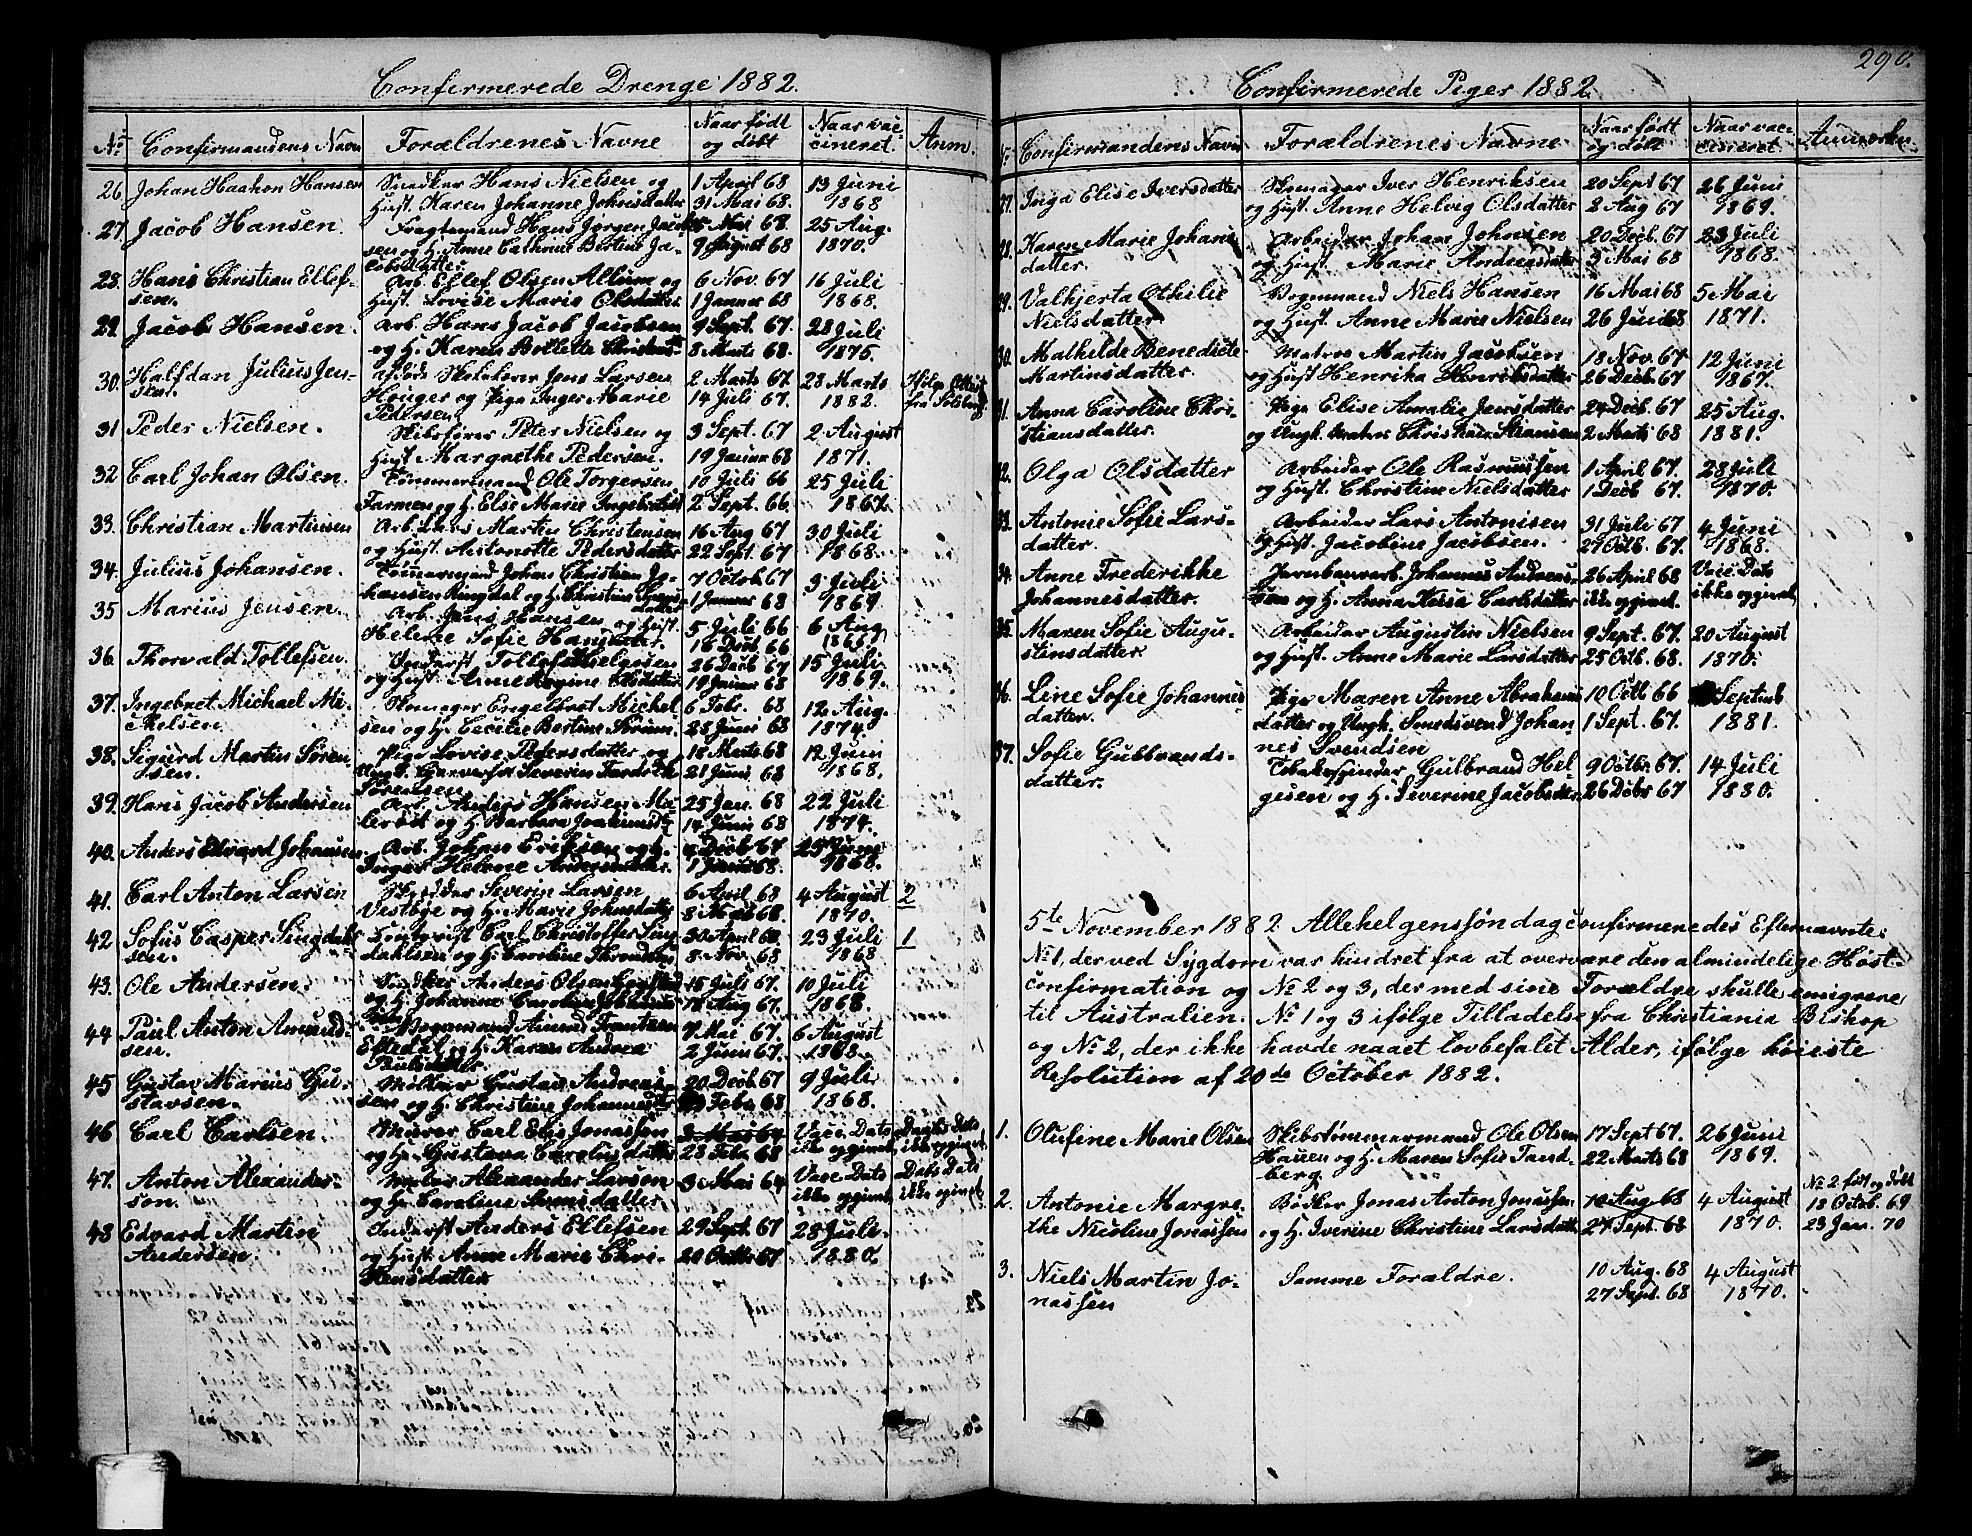 Confirmerede Drenge 1882.
No Confirmandens Navn Forældrenes Navne Naar født og døbt Naar vaccineret. Anm.
26. Johan Haakon Hansen Snedker Hans Nielsen og 1 April 68 13 Juni
Hust. Karen Johanne Johnsdatter 31 Mai 68. 1868
27. Jacob Hansen. Fragtemand Hans Jørgen Jacob- Mai 68. 25 Aug.
sen og H. Anne Cathrine Bertine Ja- 9 August 68 1870.
cobsdatter
28. Hans Christian Ellef- Arb. Ellef Olsen og 6 Nov. 67 16 Juli
sen. Hust. Lovise Marie Olsdatter 1 Januar 68 1868.
29. Jacob Hansen. Arb. Hans Jacob Jacobsen 9 Sept. 67. 28 Juli
og H. Karen Bollette Christens- 8 Marts 68. 1875.
30. Halfdan Julius Jen- Skolelærer Jens Larsen 2 Marts 67. 28 Marts
sen. og Pige Inger Marie 14 Juli 67. 1882. fra
Pedersen.
31 Peder Nielsen. Skibsfører Peter Nielsen og 3 Sept. 67 2 August
Hust. Margrethe Pedersen. 19 Januar 68 1871.
32 Carl Johan Olsen. Tømmermand Ole Torgersen 10 Juli 66 25 Juli
Farmen og H. Else Marie Ingebretsd 2 Sept. 66. 1867.
33. Christian Martinsen Arb. Lars Martin Christensen 16 Aug 67 30 Juli
og Hust. Antonette Pedersdatter 22 Sept. 67 1868.
34. Julius Johansen. Tømmermand Johan Christian Jo- 7 Octob 67 9 Juli
hansen Ringdal og H. Christine 1 Januar 68 1869
35 Marius Jensen. Arb. Jens Hansen og Hust. 5 Juli 66 6 Aug
Helene Sofie Hansdatter. 16 Decb 66 1869.
36. Thorvald Tollefsen. Inderst Tollef Helgesen 26 Decb 67 15 Juli
og Hust. Anne Regine 19 Januar 68 1869.
37. Ingebret Michael Mi- Skomager Engelbret Michel- 6 Febr. 68 12 Aug.
ckelsen. sen og H. Cecilie Bertine 28 Juni 68 1874.
38. Sigurd Martin Søren- Pige Lovise Pedersdatter og 18 Marts 68 12 Juni
sen. Ungk. Garversv. Severin 21 Juni 68 1868.
Sørensen.
39. Hans Jacob Andersen Arb. Anders Hansen 25 Jan. 68 22 Juli
og H. Barbara Joakimsd. 14 Juni 68 1874.
40. Anders Edvard Johansen. Arb. Johan Eriksen og H. Decb 67 25 Juni
Inger Helene Andersdatter. 1 Januar 68. 1868.
41. Carl Anton Larsen Skrædder Severin Larsen 6 April 68 4 August 2
Vestbye og H. Marie Johnsdatter 8 Novb 68. 1870.
42 Sofus Casper Lingdahl- Carl Christoffer Ling- 30 April 68 23 Juli 1
sen. dahlsen og H. Caroline 8 Nov. 68 1868
43. Ole Andersen. Snedker Anders Olsen 15 Juli 67. 10 Juli
og H. Johanne Caroline 18 Aug 67. 1868.
44 Paul Anton Amund- Vognmand Amund Frantzen 7 Mai 67. 6 August
sen. og H. Karen Andrea 2 Juni 67. 1868.
Paulsdatter
45 Gustav Marius Gu- Møller Gustav Andreas- 20 Decb 67 9 Juli
stavsen. sen og H. Christine Johannesd. Febr 68 1868.
46 Carl Carlsen. Murer Carl Elis Jonassen 3 Mai 64 Vacc. Dato Daabs Dato
og H. Gustava Carolusdatter 28 Febr. 68 ikke opgivet. ikke opgivet.
47. Anton Alexander- Murer Alexander Larson 3 Mai 64 Vacc Dato Daabs Dato
son. og H. Caroline Svensdatter. ikke opgivet. ikke opgivet.
48 Edvard Martin Inderst Anders Ellefsen 29 Sept. 67 28 Juli
Andersen. og Hust. Anne Marie Chri- 20 Octb 67 1880.
stensdatter
290.
Confirmerede Piger 1882
No Confirmandens Navn Forældrenes Navne Naar født og døbt Naar vaccineret Anmærkn.
27. Inga Elise Iversdatter Skomager Iver Henriksen 20 Sept 67 26 Juni
og Hust. Anne Helvig Olsdatter 2 Aug 67 1869.
28. Karen Marie Johans- Arbeider Johan Johnsen 20 Decb. 67 23 Juli
datter. og Hust. Marie Andreasdatter 3 Mai 68 1868.
29. Valhjerta Othilie Vognmand Niels Hansen 16 Mai 68 5 Mai
Nielsdatter. og Hust. Anne Marie Nielsen 26 Juni 68 1871.
30. Mathilde Benedicte Matros Martin Jacobsen 18 Nov. 67 12 Juni
Martinsdatter. og Hust Henrika Henriksdatter 26 Decb 67 1867.
31. Anna Caroline Chri- Pige Elise Amalie Jensdatter 24 Decb. 67 25 Aug.
stiansdatter. og Ungk. Matros Christian 2 Marts 68 1881.
32. Olga Olsdatter Arbeider Ole Rasmussen 1 April 67. 28 Juli
og Hust. Christine Nielsdatter 1 Decb 67. 1870.
33. Antonie Sofie Lars- Arbeider Lars Antonisen 31 Juli 67 4 Juni
datter. og Hust. Jacobine Jacobsen. 27 Octb. 67. 1868.
34. Anne Frederikke Jernbanearb. Johannes Andreas- 26 April 68 Vacc Dato
Johannesdatter. sen og H. Anna Carlsdatter ikke opgivet. ikke opgivet.
35. Maren Sofie Augu- Arbeider Augustin Nielsen 9 Sept. 67. 20 August
stinsdatter. og Hust. Anne Marie Larsdatter 25 Octb. 68. 1870.
36. Line Sofie Johannes- Pige Maren Anne Abrahams- 10 Octb 66 Septemb
datter. datter og Ungk. Smedsvend Johan- 1 Sept. 67. 1881.
nes Svendsen
37. Sofie Gulbrands- Tobaksspinder Gulbrand Hel- 9 Octbr 67. 14 Juli
datter. gesen og H. Severine Jacobsdatter 26 Decbr 67 1880.
5te November 1882 Allehelgenssøndag confirmeredes Efternævnte:
No 1, der ved Sygdom var hindret fra at overvære den almindelige Høst-
confirmation og No 2 og 3, der med sine Forældre skulle emigrere
til Australien. No 1 og 3 ifølge Tilladelse fra Christiania Biskop
og No 2, der ikke havde naaet lovbefalet Alder, ifølge høieste
Resolution af 20de October 1882.
1. Olufine Marie Olsen Skibstømmermand Ole Olsen 17 Sept 67. 26 Juni
Hauen og H. Maren Sofie Sand- 22 Marts 68 1869.
berg
2. Antonie Margre- Bødker Jonas Anton Jonassen 10 Aug. 68 4 August No 2 født og døbt
the Nicoline Jonassen og H. Iverine Christine Larsdatter 27 Sept. 68 1870. 18 Octob. 69
23 Jan. 70
3. Niels Martin Jo- Samme Forældre. 10 Aug. 68 4 August
nassen 27 Sept. 68 1870.